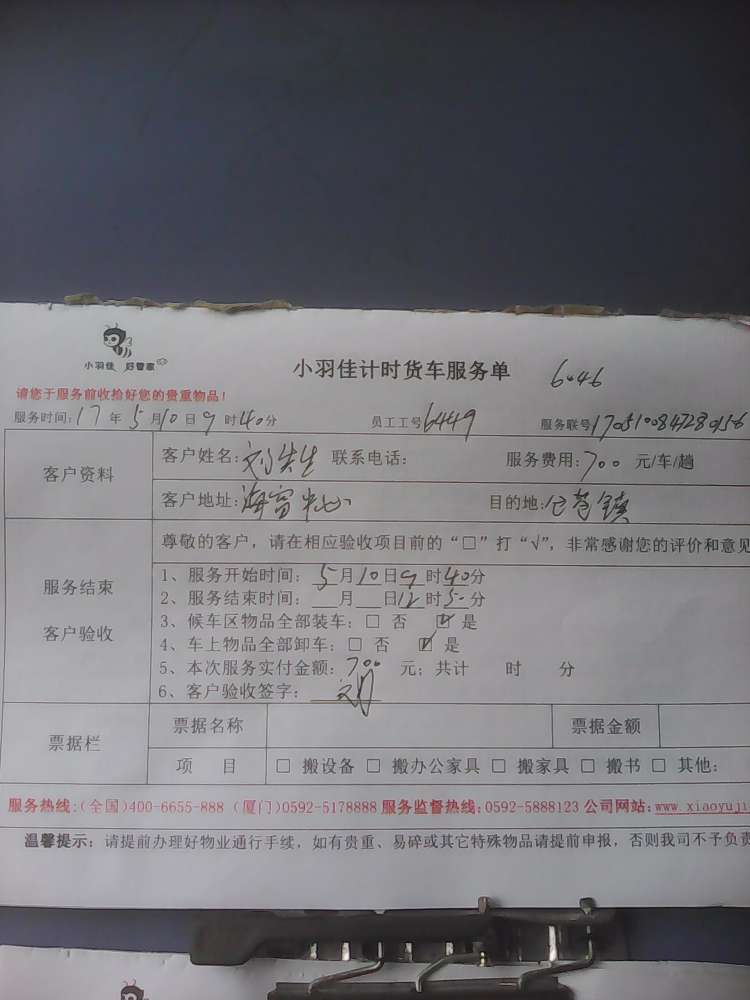 小羽佳 好管家
小羽佳计时货车服务单 6046
请您于服务前收捡好您的贵重物品!
服务时间:17年5月10日9时40分 员工工号6449 服务联号1705100847280156
客户资料
客户姓名:刘先生 联系电话: 服务费用:700元/车/趟
客户地址:海富中心 目的地:镇
服务结束
客户验收
尊敬的客户,请在相应验收项目前的“□”打“√”,非常感谢您的评价和意见
1、服务开始时间:5月10日9时40分
2、服务结束时间:__月__日12时50分
3、候车区物品全部装车:□ 否 ☑ 是
4、车上物品全部卸车:□ 否 ☑ 是
5、本次服务实付金额:700元;共计 时 分
6、客户验收签字:
票据栏
票据名称 票据金额
项 目 □ 搬设备 □ 搬办公家具 □ 搬家具 □ 搬书 □ 其他:
服务热线:(全国)400-6655-888 (厦门)0592-5178888 服务监督热线:0592-5888123 公司网站:www.xiaoyuji
温馨提示:请提前办理好物业通行手续,如有贵重、易碎或其它特殊物品请提前申报,否则我司不予负责